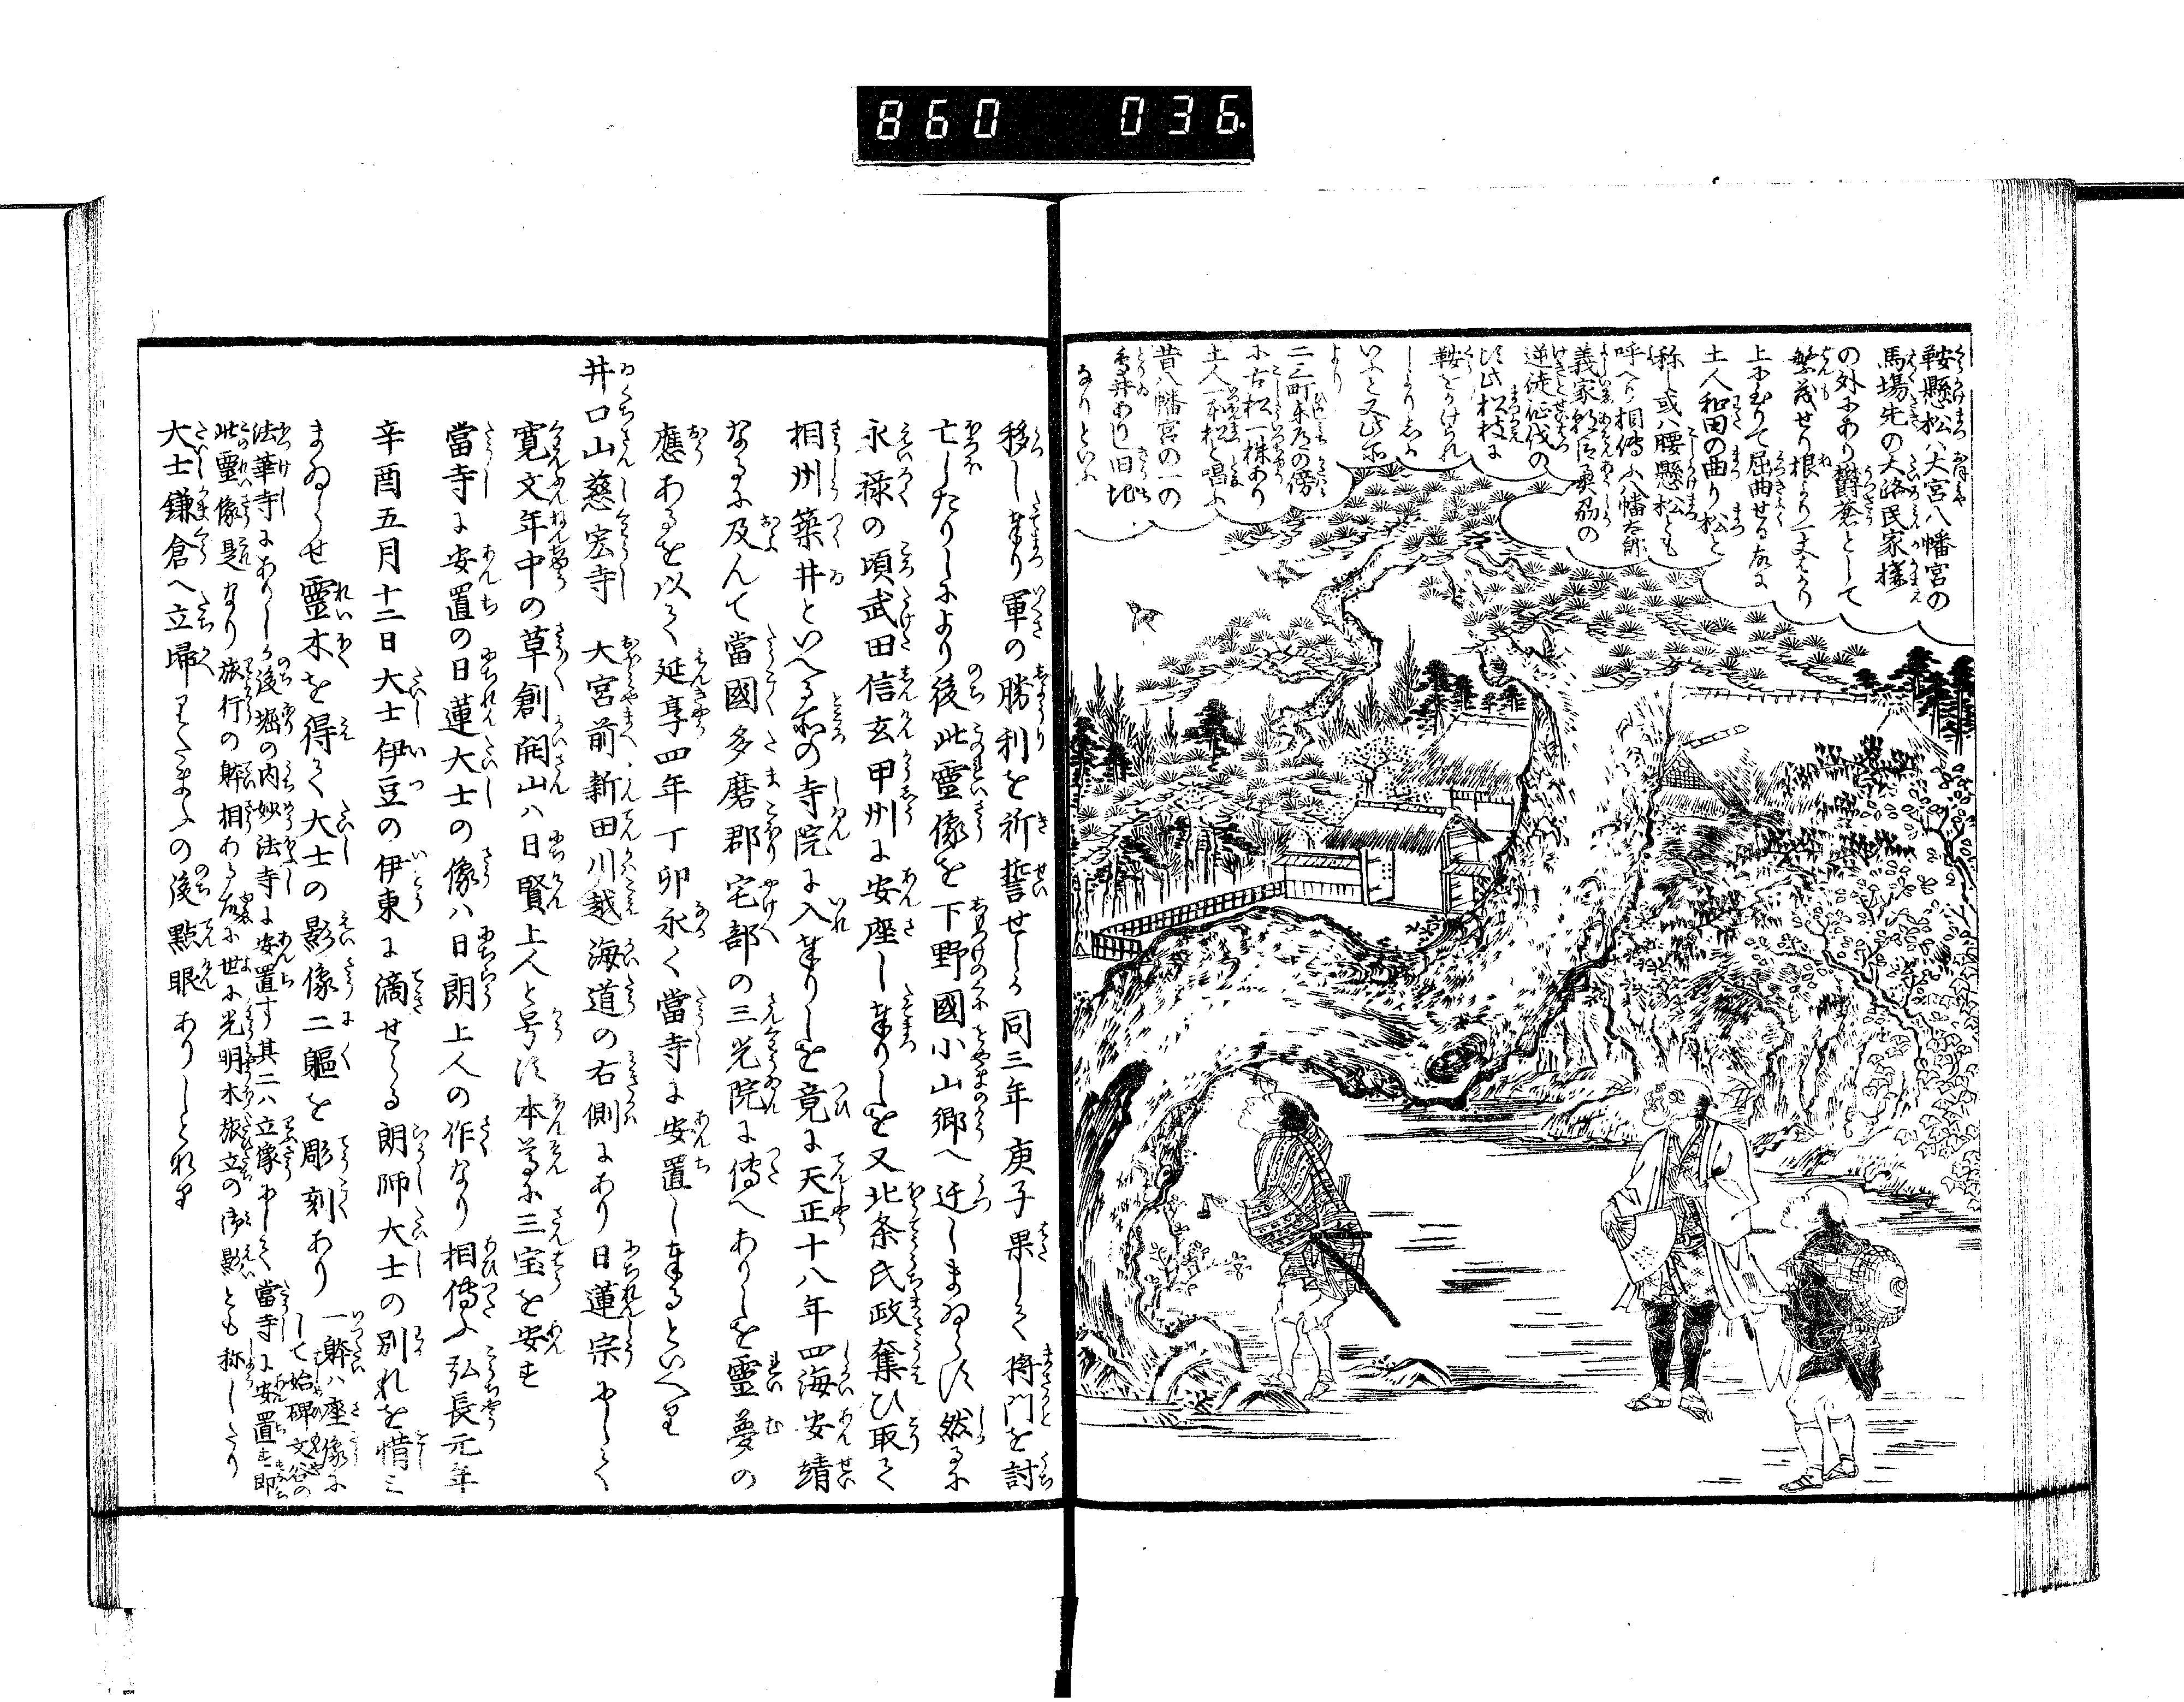 860 036
鞍懸松ハ大宮八幡宮の
馬場先の大路民家構
の外にあり欝蒼として
繁茂せり根より一丈はかり
上にありて屈曲せる故に
土人和田の曲り松と
称し或ハ腰懸松とも
呼へり相傳ふ八幡太郎
義家朝臣奥羽の
逆徒征伐の
頃此松枝に
鞍をかけられ
しよりしか
いふと又此所
より
二三町東乃の傍
に古松一株あり
土人一本松と唱ふ
昔八幡宮の一の
鳥井ありし旧地
なりといふ
移し奉り軍の勝利を祈誓せしか同三年庚子果して将門を討
亡したりしにより後此靈像を下野國小山郷へ迁しまゐらす然るに
永禄の頃武田信玄甲州に安座し奉りしを又北条氏政奪ひ取て
相州築井といへる所の寺院に入奉りしを竟に天正十八年四海安靖
なるに及んて當國多磨郡宅部の三光院に傳へありしを靈夢の
應あるを以て延享四年丁卯永く當寺に安置し奉るといへり
井口山慈宏寺 大宮前新田川越海道の右側にあり日蓮宗にして
寛文年中の草創開山ハ日賢上人と号す本尊に三宝を安す
當寺に安置の日蓮大士の像ハ日朗上人の作なり相傳ふ弘長元年
辛酉五月十二日大士伊豆の伊東に謫せらる朗師大士の別れを惜ミ
まゐらせ靈木を得て大士の影像二軀を彫刻あり
一躰ハ座像に
して始碑文谷の
法華寺にありしか後堀の内妙法寺に安置す其二ハ立像にして當寺に安置す即
此靈像是なり旅行の躰相ある故に世に光明木旅立の御影とも称したり
大士鎌倉へ立帰りたまふの後點眼ありしとなり